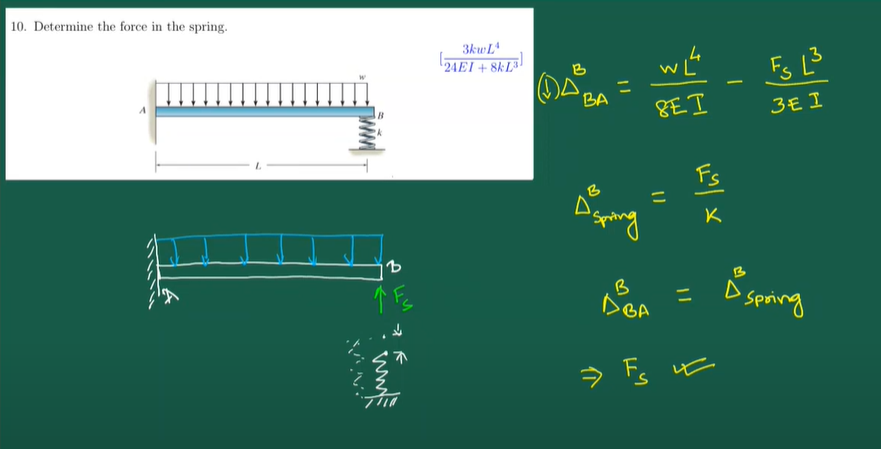 10. Determine the force in the spring.
[3kwL⁴ / 24EI + 8kL³]
w
A
B
k
L
(↓) Δ^B_BA = wL⁴ / 8EI − F_S L³ / 3EI
Δ^B_Spring = F_S / K
Δ^B_BA = Δ^B_Spring
⇒ F_S
A
B
↑ F_S